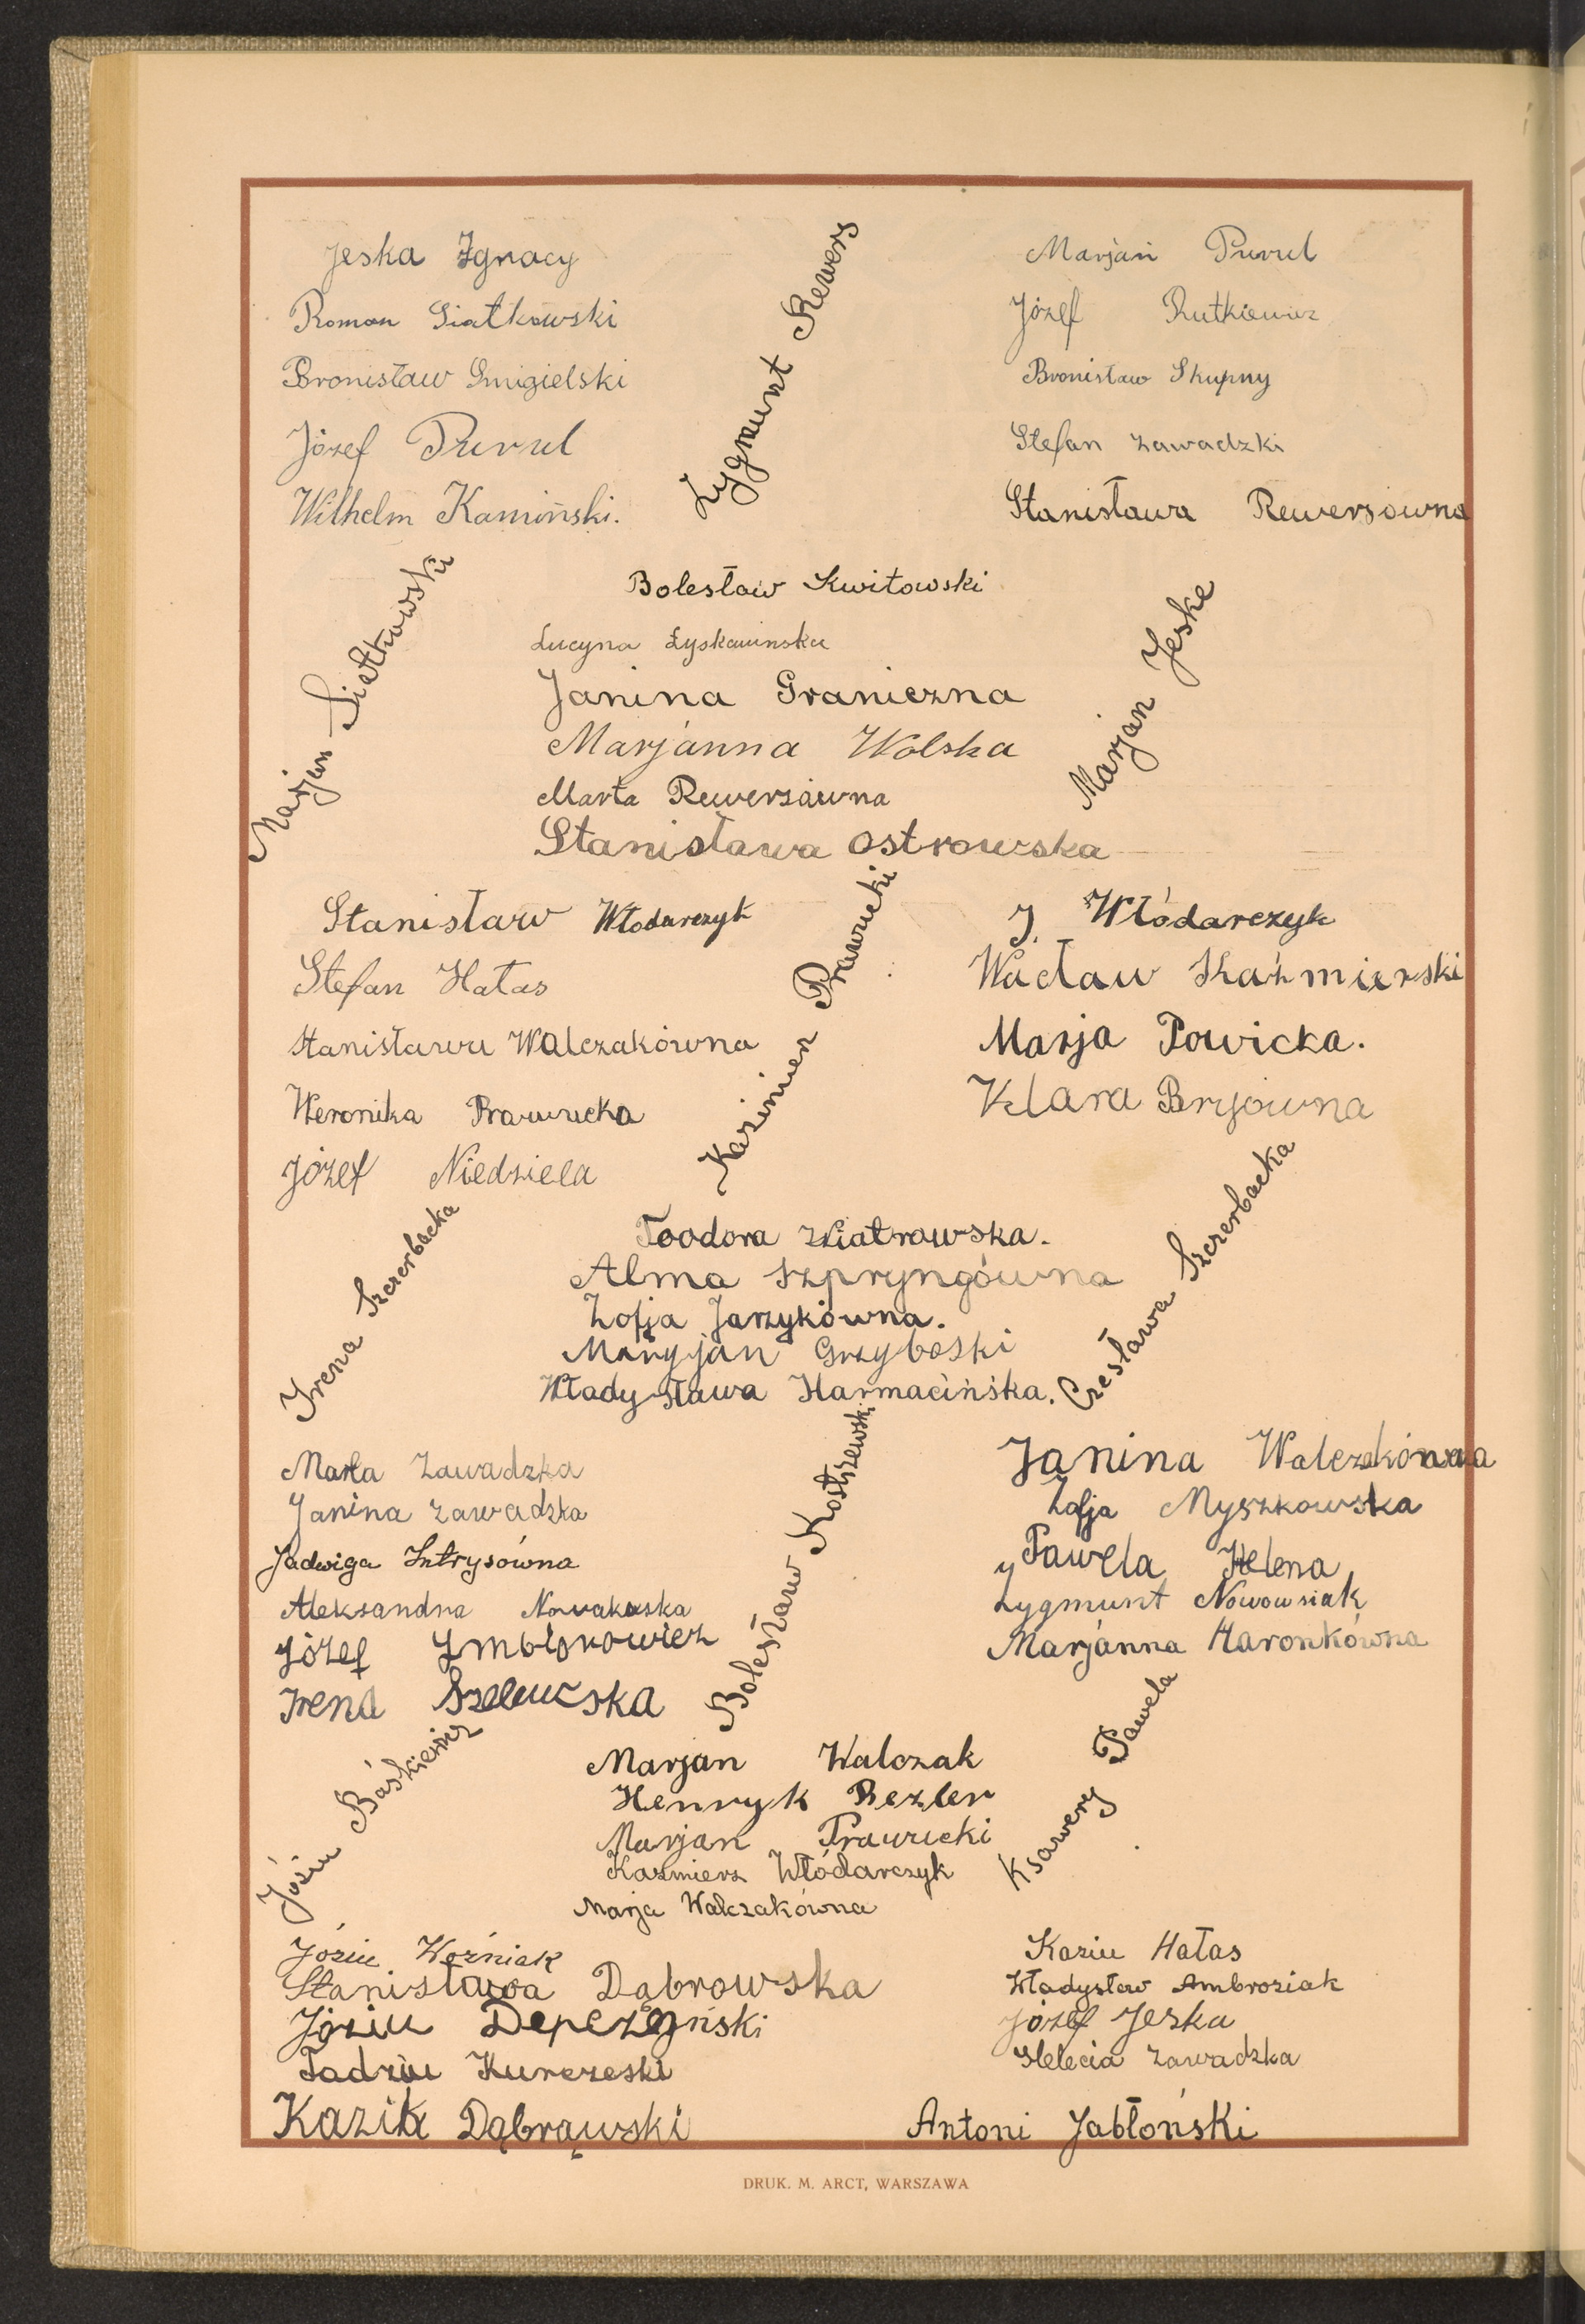 Jeska Ignacy
Roman Siatkowski
Bronisław Śmigielski
Józef Purul
Wilhelm Kamiński.
Zygmunt Rewers
Marjan Purul
Józef Rutkiewicz
Bronisław Skupny
Stefan Zawadzki
Stanisława Rewersówna
Marjan Siatkowski
Bolesław Kwitowski
Lucyna Łyskawinska
Janina Graniczna
Marjanna Wolska
Marta Rewersówna
Stanisława Ostrowska
Marjan Jeske
Stanisław Włodarczyk
Stefan Hałas
Stanisława Walczakówna
Weronika Prawucka
Józef Niedziela
Kazimierz Prawucki
J. Włódarczyk
Wacław Kaźmierski
Marja Powicka.
Klara Bryówna
Irena Szczerbacka
Teodora Wiatrowska.
Alma Szpryngówna
Zofja Jarzykówna.
Maryjan Grzyboski
Władysława Harmacińska.
Czesława Szczerbacka
Marta Zawadzka
Janina Zawadzka
Jadwiga Intrysówna
Aleksandra Nowakoska
Józef Imbiorowicz
Irena Szelewska
Bolesław Kostrzewski
Janina Walczkówna
Zofja Myszkowska
Pawela Helena
Zygmunt Nowowsiak
Marjanna Haronkówna
Józiu Baśkiewicz
Marjan Walczak
Henryk Rezler
Marjan Prawucki
Kazmierz Włódarczyk
Marja Walczakówna
Ksawery Pawela
Józiu Woźniak
Stanisława Dąbrowska
Józiu Depczyński
Tadziu Kurczeski
Kazik Dąbrawski
Kaziu Hałas
Władysław Ambroziak
Józef Jeska
Helecia Zawadzka
Antoni Jabłoński
DRUK. M. ARCT, WARSZAWA